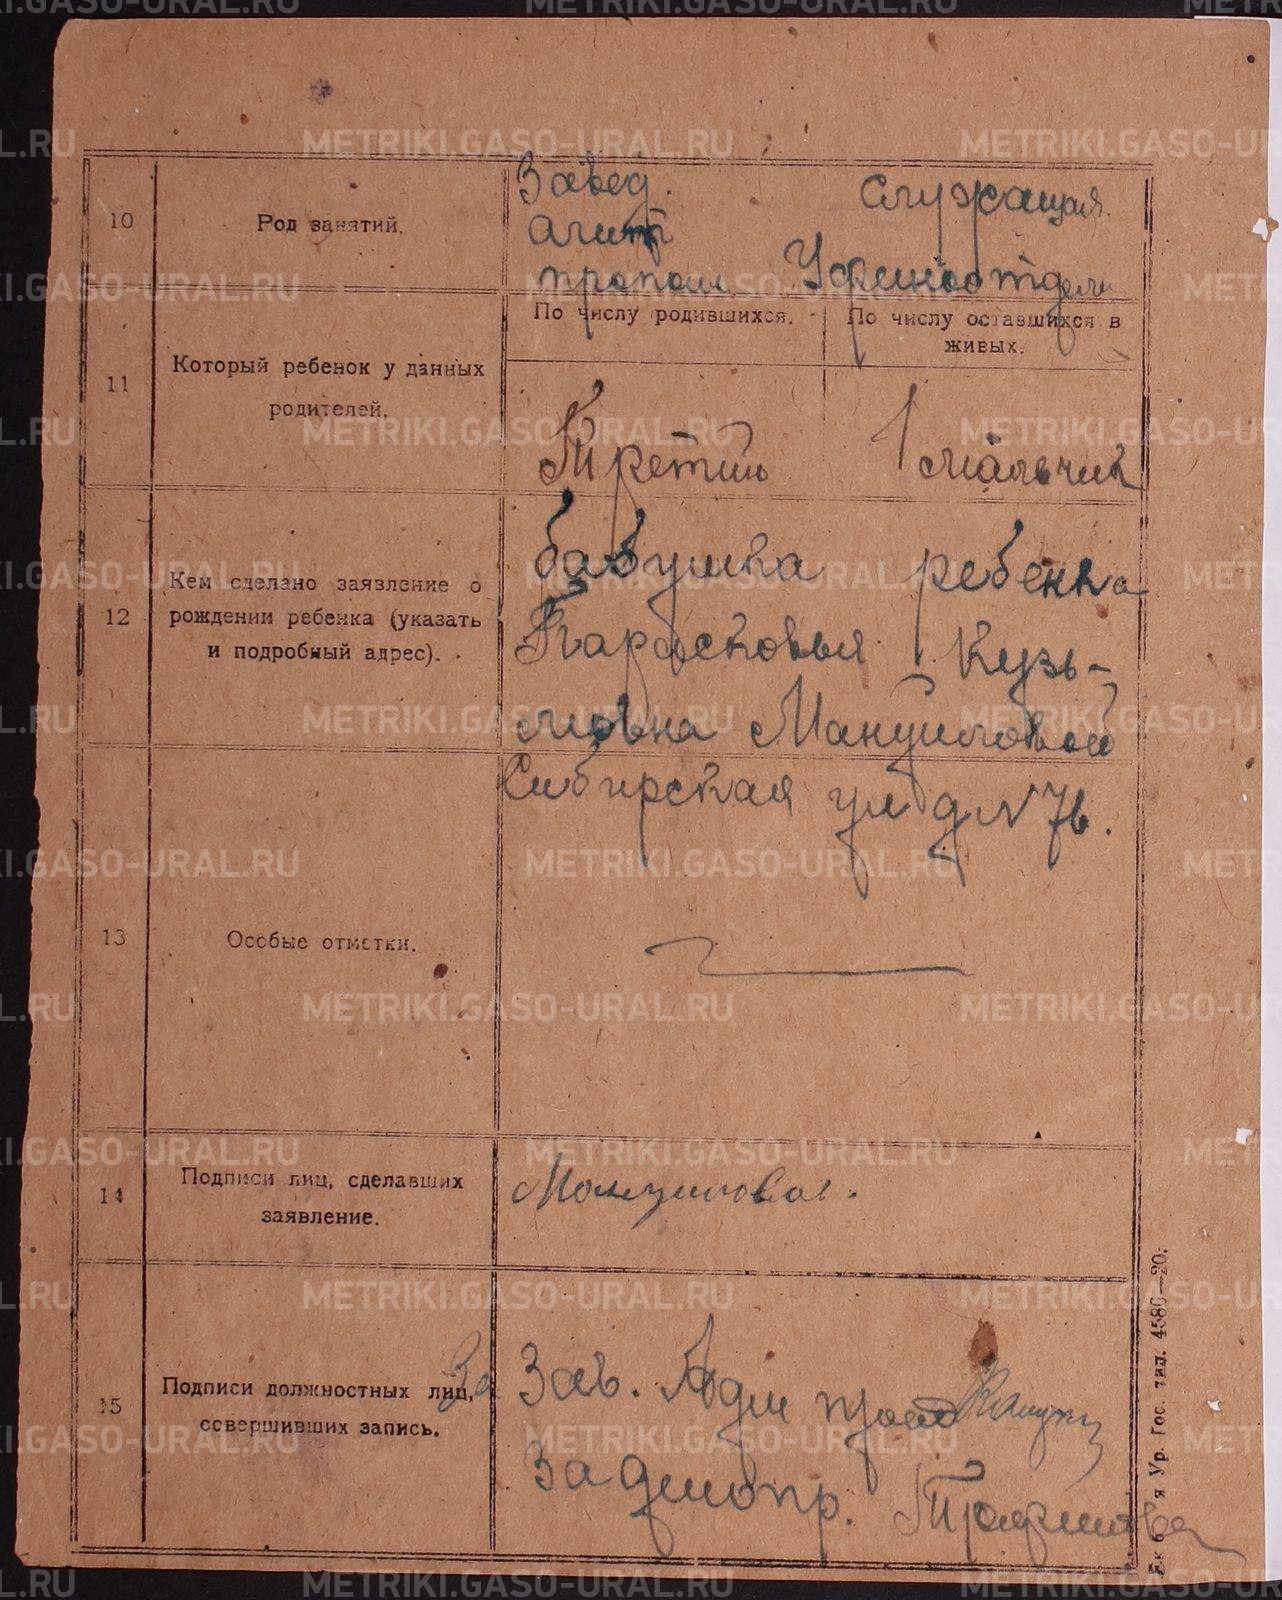 10
Род занятий.
Завед.
Агит
пропом
служащая
11
Который ребенок у данных
родителей.
По числу родившихся.
По числу оставшихся в
живых.
Третий
1 мальчик
12
Кем сделано заявление о
рождении ребенка (указать
и подробный адрес).
бабушка ребенка
Парасковья Кузь-
мовна Мануиловой
Сибирская ул д № 76.
13
Особые отметки.
14
Подписи лиц, сделавших
заявление.
Мануилова.
15
Подписи должностных лиц,
совершивших запись.
За Зав. Адм
За делопр.
Ур. Гос. тип. 4586—20.
METRIKI.GASO-URAL.RU